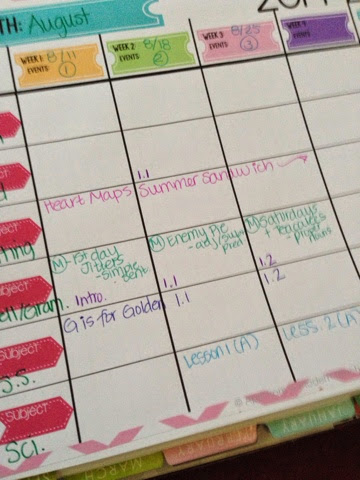 TH: August
WEEK 1: 8/11
EVENTS: 1
WEEK 2: 8/18
EVENTS: 2
WEEK 3: 8/25
EVENTS: 3
WEEK 4:
EVENTS:
1.1
Heart Maps
Summer Sandwich
M - 1st day
Jitters
- simple
sent.
M Enemy Pie
- adj/Subj
pred
M Saturdays
+ Teacakes
- proper
nouns
Intro.
1.1
1.2
ell/Gram.
G is for Golden
1.1
1.2
Subject
S.S.
Lesson 1 (A)
Less. 2 (A)
Subject
Sci.
MARCH
JANUARY